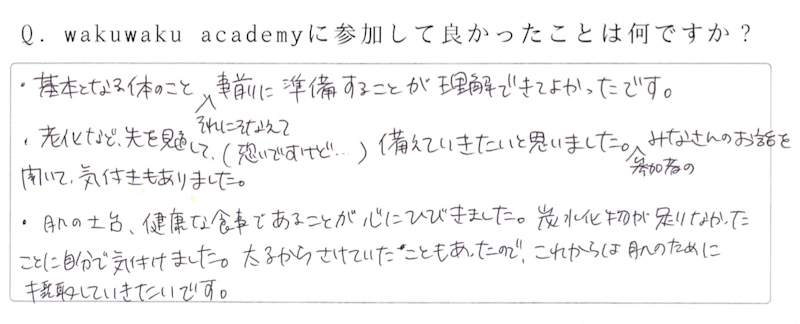 Q. wakuwaku academyに参加して良かったことは何ですか？
・基本となる体のこと 事前に準備することが理解できてよかったです。
それにそなえて
・老化など、先を見通して、(恐いですけど…) 備えていきたいと思いました。みなさんのお話を
参加者の
聞いて、気付きもありました。
・肌の土台、健康な食事であることが心にひびきました。炭水化物が足りなかった
ことに自分で気付けました。太るからさけていたこともあったので、これからは肌のために
摂取していきたいです。